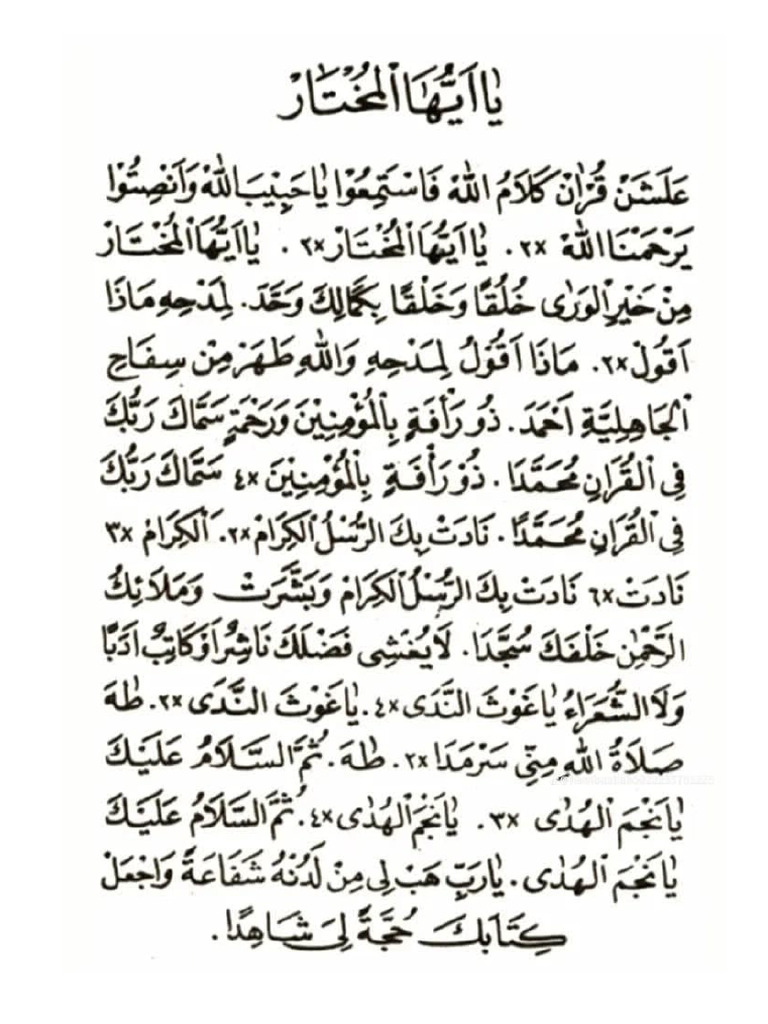 يٰا اَيُّهَا الْمُخْتَارْ
عَلَشَنْ قُرْاٰنْ كَلَامُ اللهْ فَاسْتَمِعُوْا يٰاحَبِيْبَ اللهْ وَاَنْصِتُوْا
يَرْحَمْنَا اللهْ ×٢. يٰا اَيُّهَا الْمُخْتَارْ×٢ . يٰا اَيُّهَا الْمُخْتَارْ
مِنْ خَيْرِ الْوَرٰى خُلُقًا وَخَلْقًا بِكَمَالِكَ وَحَّدَ. لِمَدْحِهِ مَاذَا
اَقُوْلْ×٢. مَاذَا اَقُوْلُ لِمَدْحِهِ وَاللهِ طَهَرْ مِنْ سِفَاحِ
الْجَاهِلِيَّةِ اَحْمَدَ. ذُوْ رَأْفَةٍ بِالْمُؤْمِنِيْنَ وَرَحْمَةٍ سَمَّاكَ رَبُّكَ
فِى الْقُرَانِ مُحَمَّدَا . ذُوْ رَأْفَةٍ بِالْمُؤْمِنِيْنَ ×٤ سَمَّاكَ رَبُّكَ
فِى الْقُرَانِ مُحَمَّدًا . نَادَتْ بِكَ الرُّسُلُ الْكِرَامْ×٢. اَلْكِرَامْ ×٣
نَادَتْ×٦ نَادَتْ بِكَ الرُّسُلُ الْكِرَامْ وَبَشَّرَتْ وَمَلَائِكُ
الرَّحْمٰنِ خَلْفَكَ سُجَّدَا. لَايُغْشِى فَضْلَكَ نَاشِرٌ اَوْ كَاتِبٌ اَدَبًا
وَلَا الشُّعَرَاءُ يٰاغَوْثَ النَّدَى×٤. يٰاغَوْثَ النَّدَى ×٢. طٰهَ
صَلَاةُ اللهِ مِنِّى سَرْمَدَا ×٢. طٰهَ. ثُمَّ السَّلَامُ عَلَيْكَ
يٰانَجْمَ الْهُدٰى ×٣. يٰانَجْمَ الْهُدٰى×٤. ثُمَّ السَّلَامُ عَلَيْكَ
يٰانَجْمَ الْهُدٰى . يٰارَبِّ هَبْ لِى مِنْ لَدُنْهُ شَفَاعَةً وَاجْعَلْ
كِتَابَكَ حُجَّةً لِىَ شَاهِدًا .